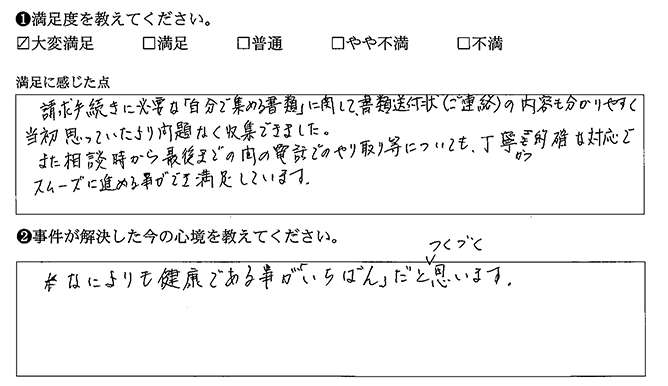 ❶満足度を教えてください。
☑大変満足 □満足 □普通 □やや不満 □不満
満足に感じた点
請求手続きに必要な「自分で集める書類」に関して、書類送付状(ご連絡)の内容も分かりやすく
当初思っていたより問題なく収集できました。
また相談時から最後までの間の電話でのやり取り等についても、丁寧かつ的確な対応で
スムーズに進める事ができ満足しています。
❷事件が解決した今の心境を教えてください。
つくづく
※なによりも健康である事が「いちばん」だと思います。